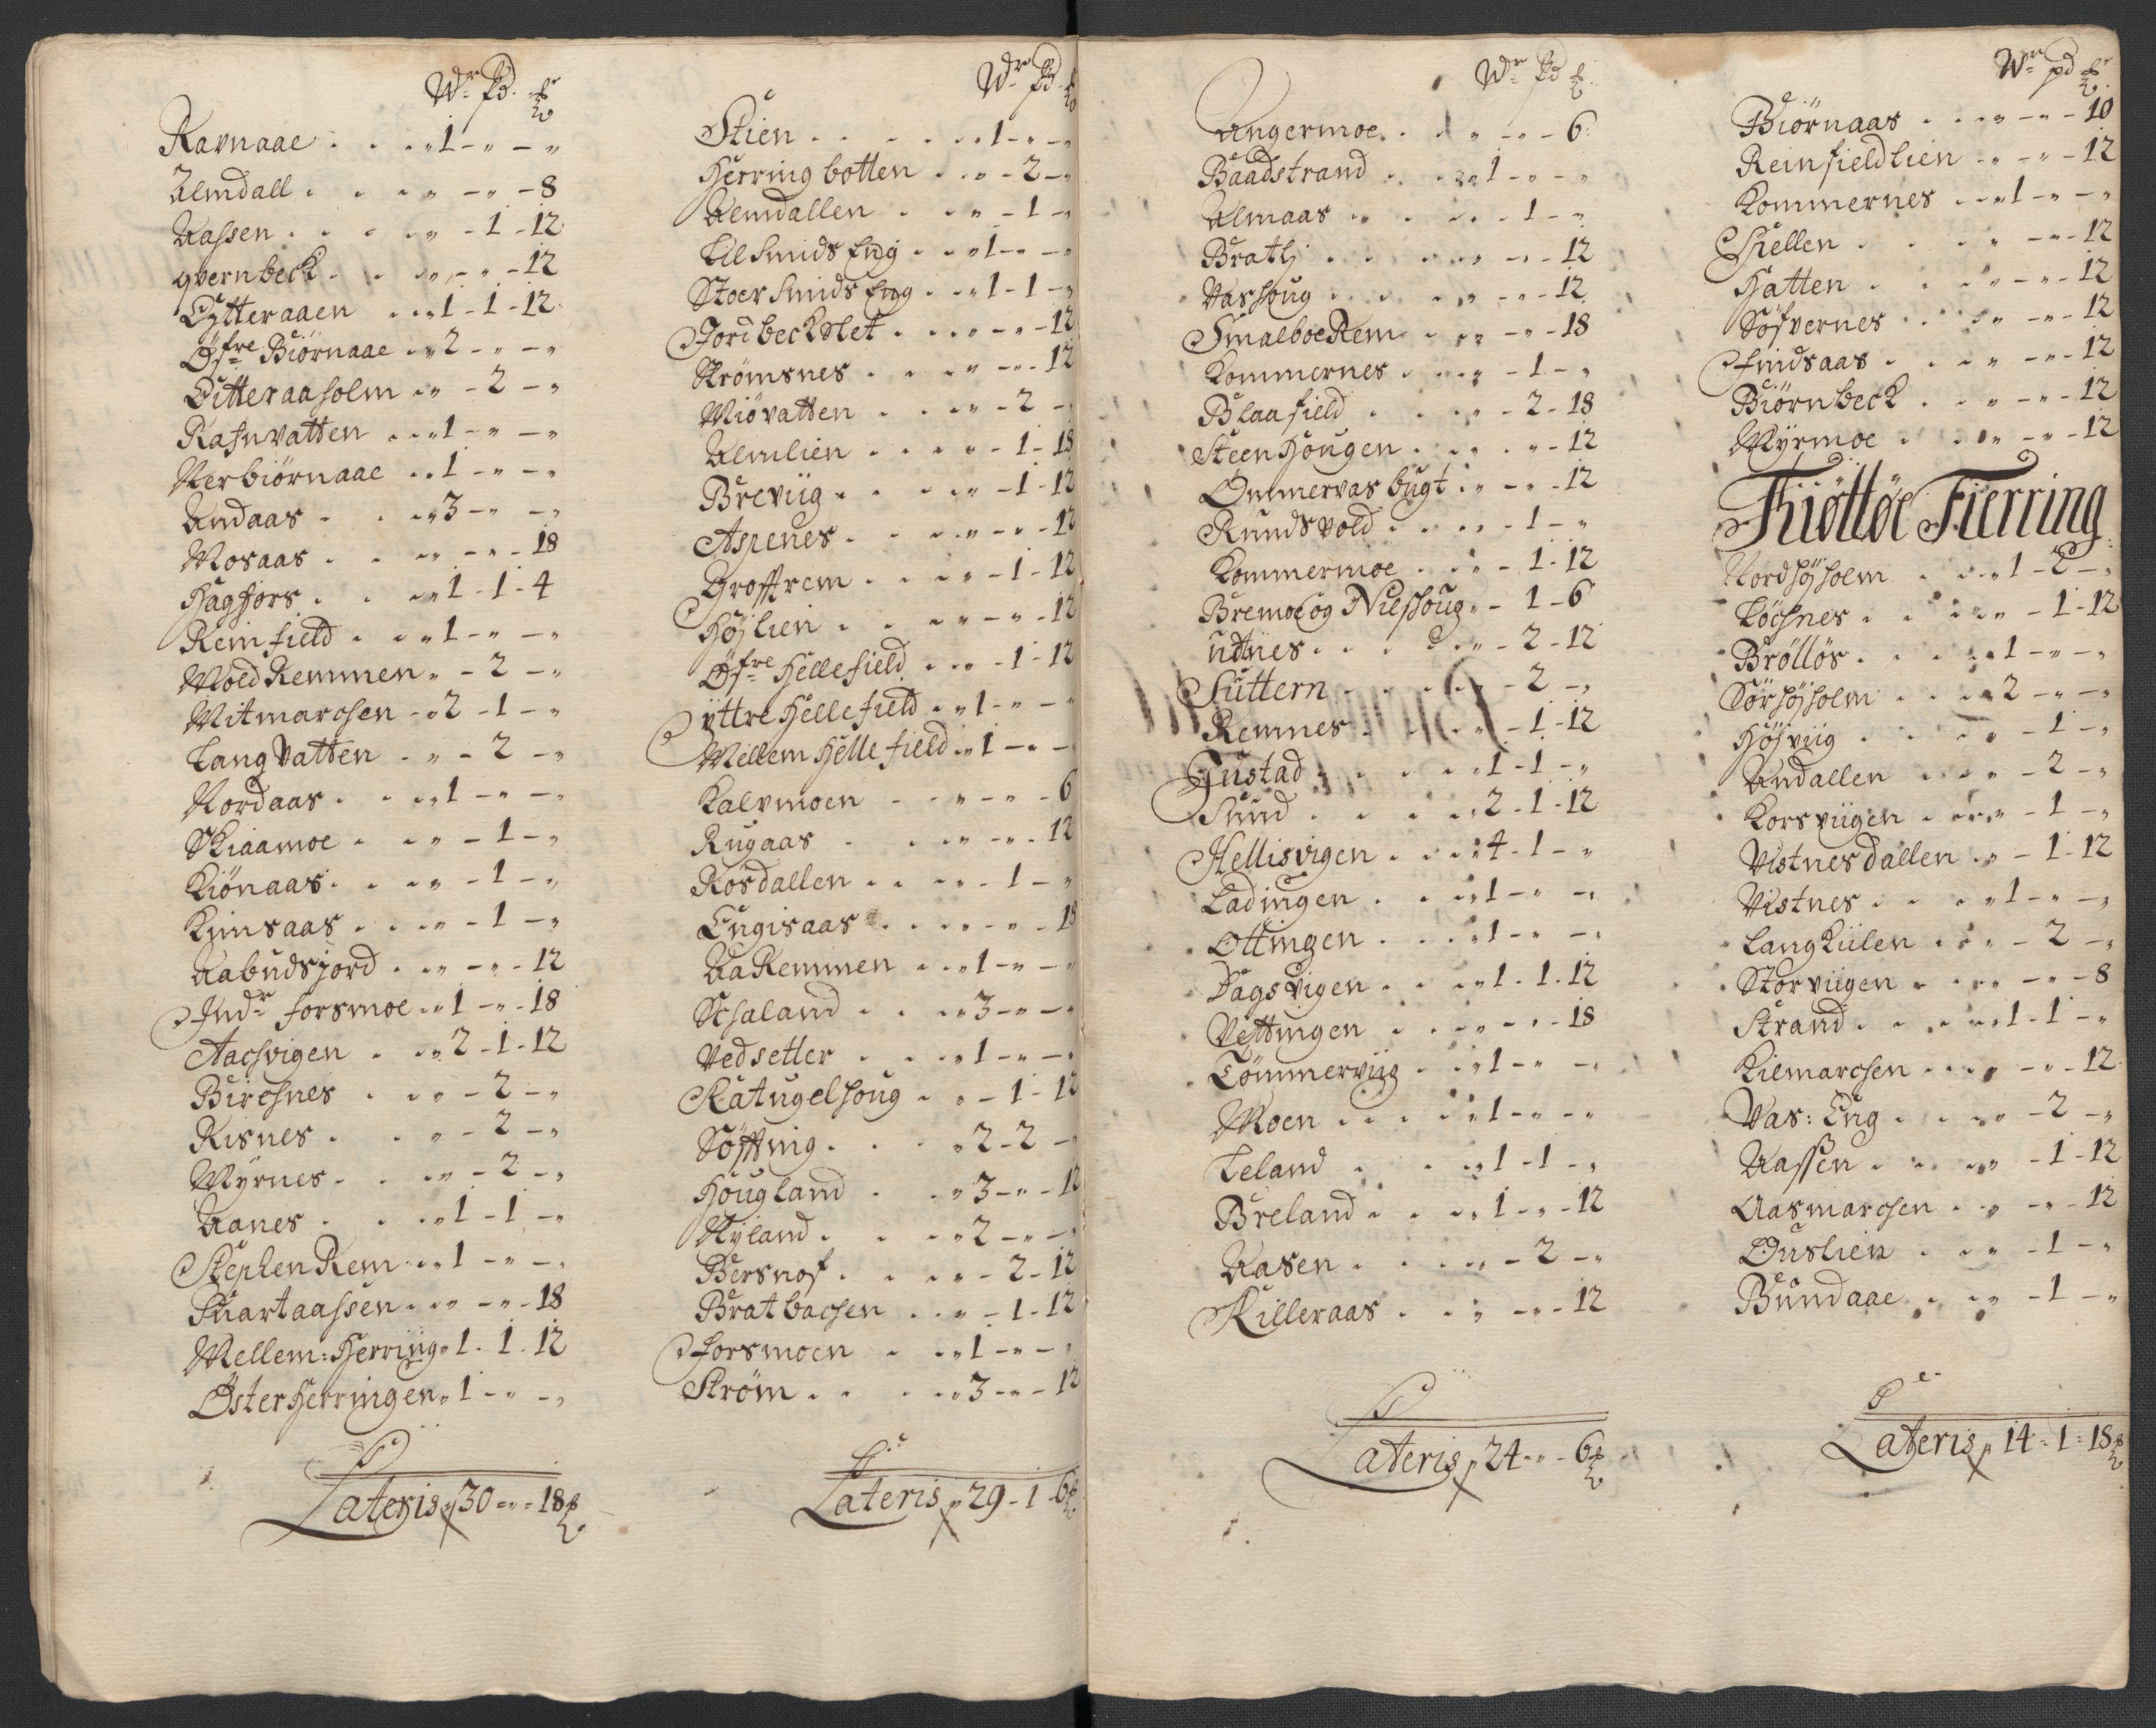 Wr Pd lb
Ravnaae . . . „ 1 - „ - „
Almdall . . . „ - „ - 8
Aassen . . . „ - 1 - 12
qvernbeck . . . „ - „ - 12
Ÿtteraaen . . „ 1 - 1 - 12
Øfre Biörnaae . „ 2 - „ - „
Øitteraaholm „ - 2 - „
Rafnvatten . . „ 1 - „ - „
Nerbiörnaae . „ 1 - „ - „
Andaas . . „ 3 - „ - „
Mosaas . . . „ - „ - 18
Hagfors . . „ 1 - 1 - 4
Reinfield . . „ 1 - „ - „
Mold Remmen „ - 2 - „
Mitmarchen - „ 2 - 1 - „
Langvatten . „ - 2 - „
Nordaas . . „ 1 - „ - „
Skiaamoe . . „ - 1 - „
Kiönaas . . . „ - 1 - „
Kinsaas . . . „ - 1 - „
Aabudsjord . . „ - „ - 12
Indr forsmoe „ 1 - „ - 18
Aachvigen . „ 2 - 1 - 12
Birchnes . . „ - 2 - „
Risnes . . „ - 2 - „
Myrnes . . „ - 2 - „
Aanes . . „ 1 - 1 - „
Stephen Rem . „ 1 - „ - „
Suartaassen . „ - „ - 18
Mellem: Herring „ 1 . 1 . 12
Öster Herringen „ 1 - „ - „
Lateris p 30 - „ - 18 lb
Wr Pd lb
Stien . . . . „ 1 - „ - „
Herringbotten . „ - 2 - „
Almdallen . . „ - 1 - „
Lilsmids Eng . . „ 1 - „ - „
Stoersmids Eng . „ 1 - 1 - „
Jordbeckslet . . „ - „ - 12
Strømsnes . . . „ - „ - 12
Miövatten . . . „ - 2 - „
Almlien . . . „ - 1 - 18
Breviig . . . „ - 1 - 12
Aspenes . . . „ - „ - 12
Grofftrem . . . „ - 1 - 12
Höjlien . . . „ - „ - 12
Øfre Hellefield . . „ - 1 - 12
yttre Hellefield . „ 1 - „ - „
Mellem Hellefield „ 1 - „ - „
Kalvmoen . . „ - „ - 6
Rugaas . . . „ - „ - 12
Rosdallen . . . „ - 1 - „
Engisaas . . . „ - „ - 18
AaRemmen . . „ 1 - „ - „
Schaland . . „ 3 - „ - „
Vedsetter . . „ 1 - „ - „
Katugelhoug . „ - 1 - 12
Söffting . . . „ 2 - 2 - „
Hougland . . „ 3 - „ - 12
Nyland . . „ 2 - „ - „
Bersnof . . . „ - 2 - 12
Bratbachen . . „ - 1 - 12
Forsmoen . . „ 1 - „ - „
Strøm . . . „ 3 - „ - 12
Lateris p 29 - 1 - 6 lb
Wr Pd lb
Angermoe . . „ - „ - 6
Baadstrand . „ 1 - „ - „
Almaas . . . „ 1 - „
Bratlj . . . „ - „ - 12
Vashoug . . . „ - „ - 12
Smalboe Rem . „ - „ - 18
Kommernes . . „ - 1 - „
Blaafield . . . „ - 2 - 18
Steenhougen . . „ - „ - 12
Ommervasbugt . „ - „ - 12
Rundsvold . . „ - 1 - „
Kommermoe . . „ - 1 - 12
Bremoe og Nielshoug „ - 1 - 6
udnes . . . „ - 2 - 12
Suttern . . . „ - 2 - „
Remnes . . . „ - 1 - 12
Justad . . . „ 1 - 1 - „
Sund . . . „ 2 - 1 - 12
Hellisvigen . . „ 4 - 1 - „
Ladingen . . „ 1 - „ - „
Ottingen . . . „ 1 - „ - „
Dagsvigen . . „ 1 . 1 . 12
Vettingen . . . „ - „ - 18
Tömmerviig . . „ 1 - „ - „
Moen . . . . „ 1 - „ - „
Leland . . . „ 1 - 1 - „
Breland . . „ 1 - „ - 12
Aasen . . . „ - 2 - „
Killeraas . . „ - „ - 12
Lateris p 24 - „ - 6 lb
Wr pd lb
Biörnaas . . . „ - „ - 10
Reinfieldlien . „ - „ - 12
Kommernes . . „ 1 - „ - „
Skellen . . . „ - „ - 12
Hatten . . . „ - „ - 12
Söfvernes . . . „ - „ - 12
Findsaas . . . „ - „ - 12
Biörnbeck . . „ - „ - 12
Myrmoe . . . „ - „ - 12
Tiøttøe Fierring
Nordhöjholm . . „ 1 - 2 - „
Löchnes . . . „ - 1 - 12
Bröllös . . . „ 1 - „ - „
Sörhöjholm . . „ 2 - „ - „
Höjviig . . . „ - 1 - „
Andallen . . „ - 2 - „
Korsviigen . . „ - 1 - „
Vistnesdallen . „ - 1 - 12
Vistnes . . . „ 1 - „ - „
Langkiilen . . „ - 2 - „
Storviigen . . „ - „ - 8
Strand . . . „ 1 - 1 - „
Kilmarchen . . „ - „ - 12
Vas: Eng . . „ - 2 - „
Aassen . . . „ - 1 - 12
Aasmarchen . „ - „ - 12
Öuslien . . „ - 1 - „
Bundaae . . „ - 1 - „
Lateris p 14 - 1 - 18 lb